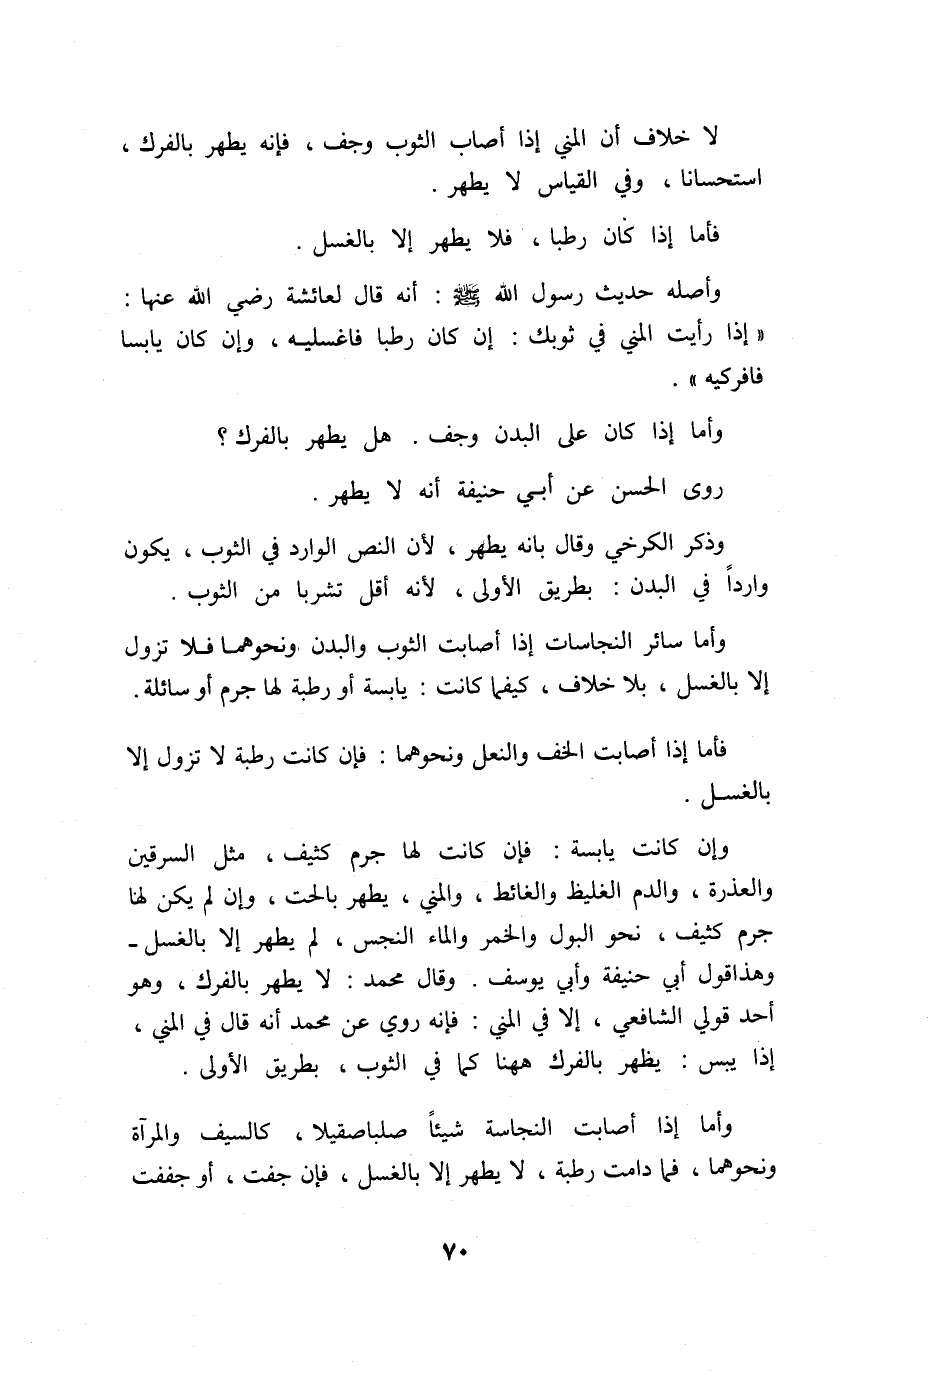 لا خلاف أن المني إذا أصاب الثوب وجف ، فإنه يطهر بالفرك ،
استحسانا ، وفي القياس لا يطهر .
فأما إذا كان رطبا ، فلا يطهر إلا بالغسل .
وأصله حديث رسول الله ﷺ : أنه قال لعائشة رضي الله عنها :
« إذا رأيت المني في ثوبك : إن كان رطبا فاغسليه ، وإن كان يابسا
فافركيه » .
وأما إذا كان على البدن وجف . هل يطهر بالفرك ؟
روى الحسن عن أبي حنيفة أنه لا يطهر .
وذكر الكرخي وقال بانه يطهر ، لأن النص الوارد في الثوب ، يكون
وارداً في البدن : بطريق الأولى ، لأنه أقل تشربا من الثوب .
وأما سائر النجاسات إذا أصابت الثوب والبدن ونحوهما فلا تزول
إلا بالغسل ، بلا خلاف ، كيفما كانت : يابسة أو رطبة لها جرم أو سائلة .
فأما إذا أصابت الخف والنعل ونحوهما : فإن كانت رطبة لا تزول إلا
بالغسل .
وإن كانت يابسة : فإن كانت لها جرم كثيف ، مثل السرقين
والعذرة ، والدم الغليظ والغائط ، والمني ، يطهر بالحت ، وإن لم يكن لها
جرم كثيف ، نحو البول والخمر والماء النجس ، لم يطهر إلا بالغسل -
وهذاقول أبي حنيفة وأبي يوسف . وقال محمد : لا يطهر بالفرك ، وهو
أحد قولي الشافعي ، إلا في المني : فإنه روي عن محمد أنه قال في المني ،
إذا يبس : يظهر بالفرك ههنا كما في الثوب ، بطريق الأولى .
وأما إذا أصابت النجاسة شيئاً صلباصقيلا ، كالسيف والمرآة
ونحوهما ، فما دامت رطبة ، لا يطهر إلا بالغسل ، فإن جفت ، أو جففت
٧٠